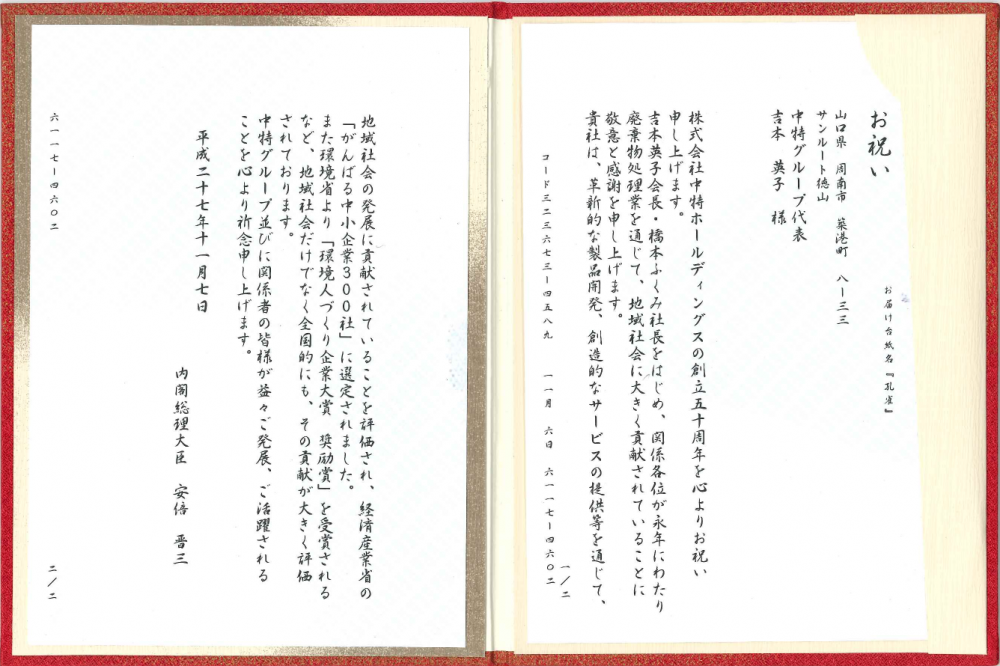 お祝い
お届け台紙名『孔雀』
山口県　周南市　築港町　八ー三三
サンルート徳山
中特グループ代表
吉本　英子　様
株式会社中特ホールディングスの創立五十周年を心よりお祝い
申し上げます。
吉本英子会長・橋本ふくみ社長をはじめ、関係各位が永年にわたり
廃棄物処理業を通じて、地域社会に大きく貢献されていることに
敬意と感謝を申し上げます。
貴社は、革新的な製品開発、創造的なサービスの提供等を通じて、
一/二
コード三二三六七三ー四五八九　一一月　六日　六一一七ー四六〇二
地域社会の発展に貢献されていることを評価され、経済産業省の
「がんばる中小企業３００社」に選定されました。
また環境省より「環境人づくり企業大賞　奨励賞」を受賞される
など、地域社会だけでなく全国的にも、その貢献が大きく評価
されております。
中特グループ並びに関係者の皆様が益々ご発展、ご活躍される
ことを心より祈念申し上げます。
平成二十七年十一月七日
内閣総理大臣　安倍　晋三
六一一七ー四六〇二
二/二